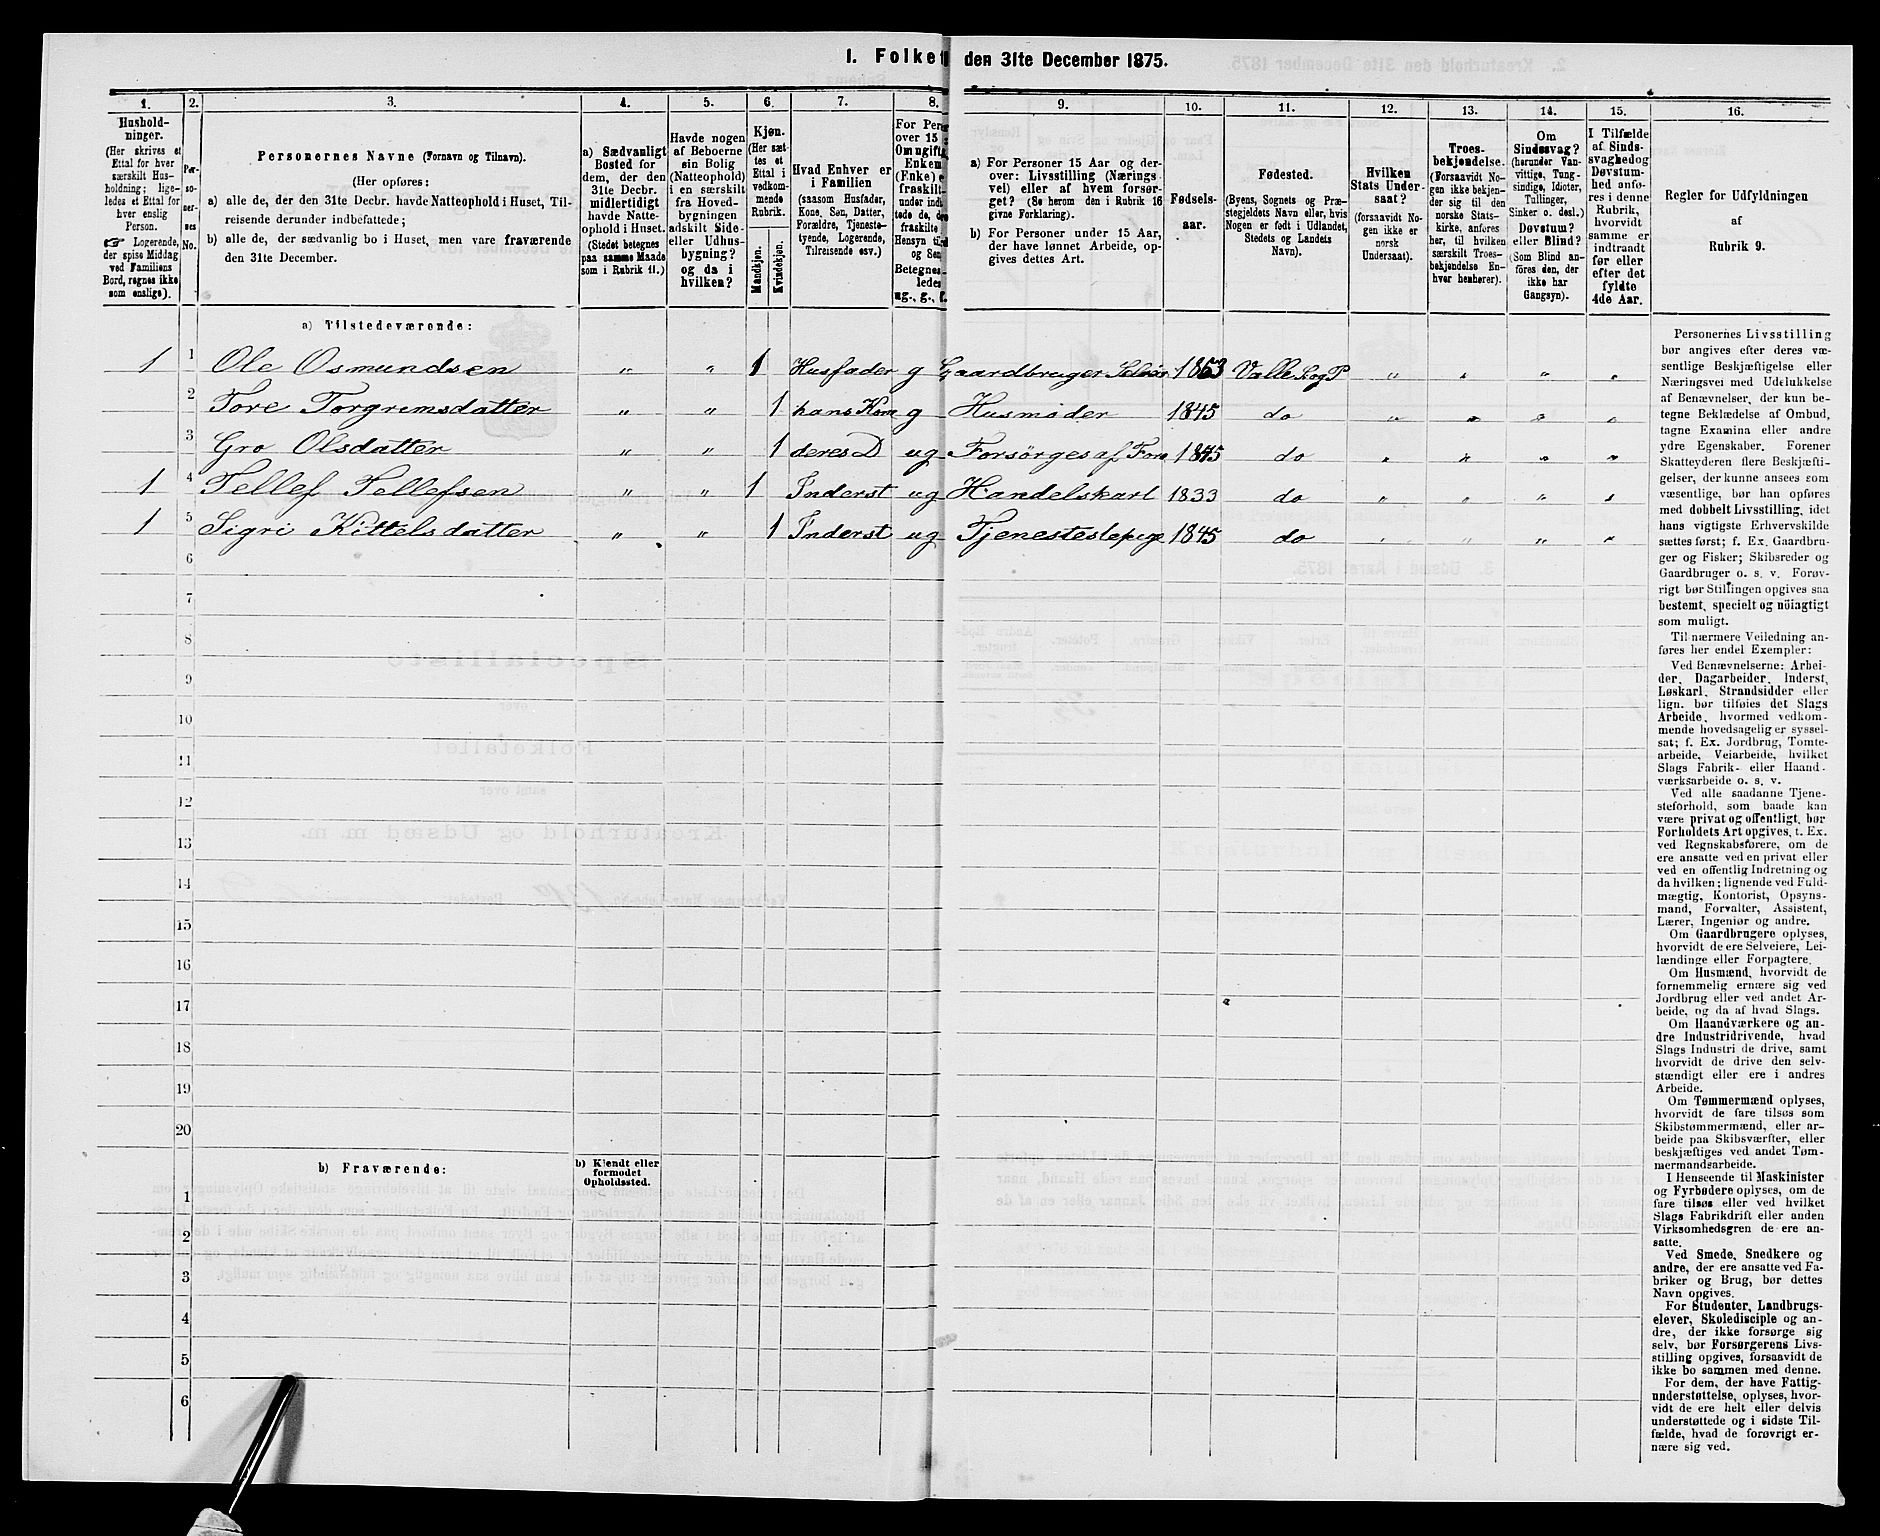 1. Folket den 31te December 1875.
1. 2. 3. 4. 5. 6. 7. 8. 9. 10. 11. 12. 13. 14. 15. 16.
Hushold-
ninger.
(Her skrives et
Ettal for hver
særskilt Hus-
holdning; lige-
ledes et Ettal for
hver enslig
Person.
☞ Logerende,
der spise Middag
ved Familiens
Bord, regnes ikke
som enslige).
Per-
so-
ner-
nes
No.
Personernes Navne (Fornavn og Tilnavn).
(Her opføres:
a) alle de, der den 31te Decbr. havde Natteophold i Huset, Til-
reisende derunder indbefattede;
b) alle de, der sædvanlig bo i Huset, men vare fraværende
den 31te December.
a) Sædvanligt
Bosted for
dem, der den
31te Decbr.
midlertidigt
havde Natte-
ophold i Huset.
(Stedet betegnes
paa samme Maade
som i Rubrik 11.)
Havde nogen
af Beboerne
sin Bolig
(Natteophold)
i en særskilt
fra Hoved-
bygningen
adskilt Side-
eller Udhus-
bygning?
og da i
hvilken?
Kjøn.
(Her sæt-
tes et
Ettal i
vedkom-
mende
Rubrik.
Mandkjøn.
Kvindekjøn.
Hvad Enhver er
i Familien
(saasom Husfader,
Kone, Søn, Datter,
Forældre, Tjeneste-
tyende, Logerende,
Tilreisende osv.)
For Pers
over 15
Om ugift
Enken
(Fnke) e
fraskilt-
under indt
tede de, de
fraskilte
Hensyn til
og Sen
Betegnes
ledes
ug., g., f.
a) For Personer 15 Aar og der-
over: Livsstilling (Nærings-
vei) eller af hvem forsør-
get? (Se herom den i Rubrik 16
givne Forklaring).
b) For Personer under 15 Aar,
der have lønnet Arbeide, op-
gives dettes Art.
Fødsels-
aar.
Fødested.
(Byens, Sognets og Præ-
stegjeldets Navn eller, hvis
Nogen er født i Udlandet,
Stedets og Landets
Navn).
Hvilken
Stats Under-
saat?
(forsaavidt No-
gen ikke er
norsk
Undersaat).
Troes-
bekjendelse.
(Forsaavidt No-
gen ikke bekjen-
der sig til den
norske Stats-
kirke, anføres
her, til hvilken
særskilt Troes-
bekjendelse En-
hver henhører).
Om
Sindssvag?
(herunder Van-
vittige, Tung-
sindige, Idioter,
Tullinger,
Sinker o. desl.)
Døvstum?
eller Blind?
(Som Blind an-
føres den, der
ikke har
Gangsyn).
I Tilfælde
af Sinds-
svaghed og
Døvstum-
hed anfø-
res i denne
Rubrik,
hvorvidt
samme er
indtraadt
før eller
efter det
fyldte
4de Aar.
Regler for Udfyldningen
af
Rubrik 9.
a) Tilstedeværende:
1 1 Ole Osmundsen " " 1 Husfader g Gaardbruger Selveier 1853 Valle S og P " " " "
2 Tore Torgrimsdatter " " 1 hans Kone g Husmoder 1845 do " " " "
3 Gro Olsdatter " " 1 deres D ug Forsørges af For 1875 do " " " "
1 4 Tellef Tellefsen " " 1 Inderst ug Handelskarl 1833 do " " " "
1 5 Sigri Kittelsdatter " " 1 Inderst ug Tjenestepige 1845 do " " " "
6
7
8
9
10
11
12
13
14
15
16
17
18
19
20
b) Fraværende:
b) Kjendt eller
formodet
Opholdssted.
1
2
3
4
5
6
Personernes Livsstilling
bør angives efter deres væ-
sentlige Beskjæftigelse eller
Næringsvei med Udelukkelse
af Benævnelser, der kun be-
tegne Beklædelse af Ombud,
tagne Examina eller andre
ydre Egenskaber. Forener
Skatteyderen flere Beskjæfti-
gelser, der kunne ansees som
væsentlige, bør han opføres
med dobbelt Livsstilling, idet
hans vigtigste Erhvervskilde
sættes først; f. Ex. Gaardbru-
ger og Fisker; Skibsreder og
Gaardbruger o. s. v. Forøv-
rigt bør Stillingen opgives saa
bestemt, specielt og nøiagtigt
som muligt.
Til nærmere Veiledning an-
føres her endel Exempler:
Ved Benævnelserne: Arbei-
der, Dagarbeider, Inderst,
Løskarl, Strandsidder eller
lign. bør tilføies det Slags
Arbeide, hvormed vedkom-
mende hovedsagelig er syssel-
sat; f. Ex. Jordbrug, Tomte-
arbeide, Veiarbeide, hvilket
Slags Fabrik- eller Haand-
værksarbeide o. s. v.
Ved alle saadanne Tjene-
steforhold, som baade kan
være privat og offentligt, bør
Forholdets Art opgives, t. Ex.
ved Regnskabsførere, om de
ere ansatte ved en privat eller
ved en offentlig Indretning og
da hvilken; lignende ved Fuld-
mægtig, Kontorist, Opsyns-
mand, Forvalter, Assistent,
Lærer, Ingeniør og andre.
Om Gaardbrugere oplyses,
hvorvidt de ere Selveiere, Lei-
lændinge eller Forpagtere.
Om Husmænd, hvorvidt de
fornemmelig ernære sig ved
Jordbrug eller ved andet Ar-
beide, og da af hvad Slags.
Om Haandværkere og an-
dre Industridrivende, hvad
Slags Industri de drive, samt
hvorvidt de drive den selv-
stændigt eller ere i andres
Arbeide.
Om Tømmermænd oplyses,
hvorvidt de fare tilsøs som
Skibstømmermænd, eller ar-
beide paa Skibsværfter, eller
beskjæftiges ved andet Tøm-
mermandsarbeide.
I Henseende til Maskinister
og Fyrbødere oplyses, om de
fare tilsøs eller ved hvilket
Slags Fabrikdrift eller anden
Virksomhedsgren de ere an-
satte.
Ved Smede, Snedkere og
andre, der ere ansatte ved Fa-
briker og Brug, bør dettes
Navn opgives.
For Studenter, Landbrugs-
elever, Skoledisciple og an-
dre, der ikke forsørge sig
selv, bør Forsørgerens Livs-
stilling opgives, forsaavidt de
ikke bo sammen med denne.
For dem, der have Fattig-
understøttelse, oplyses, hvor-
vidt de ere helt eller delvis
understøttede og i sidste Til-
fælde, hvad de forøvrigt er-
nære sig ved.